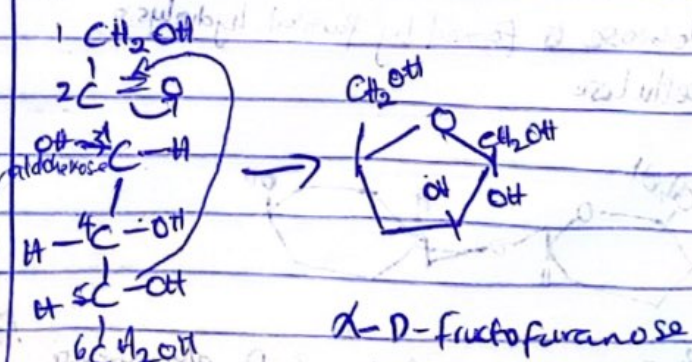 1 CH2OH
2C = O
OH - 3C - H
aldohexose
H - 4C - OH
H 5C - OH
6CH2OH
CH2OH
O
CH2OH
OH
OH
α-D-fructofuranose